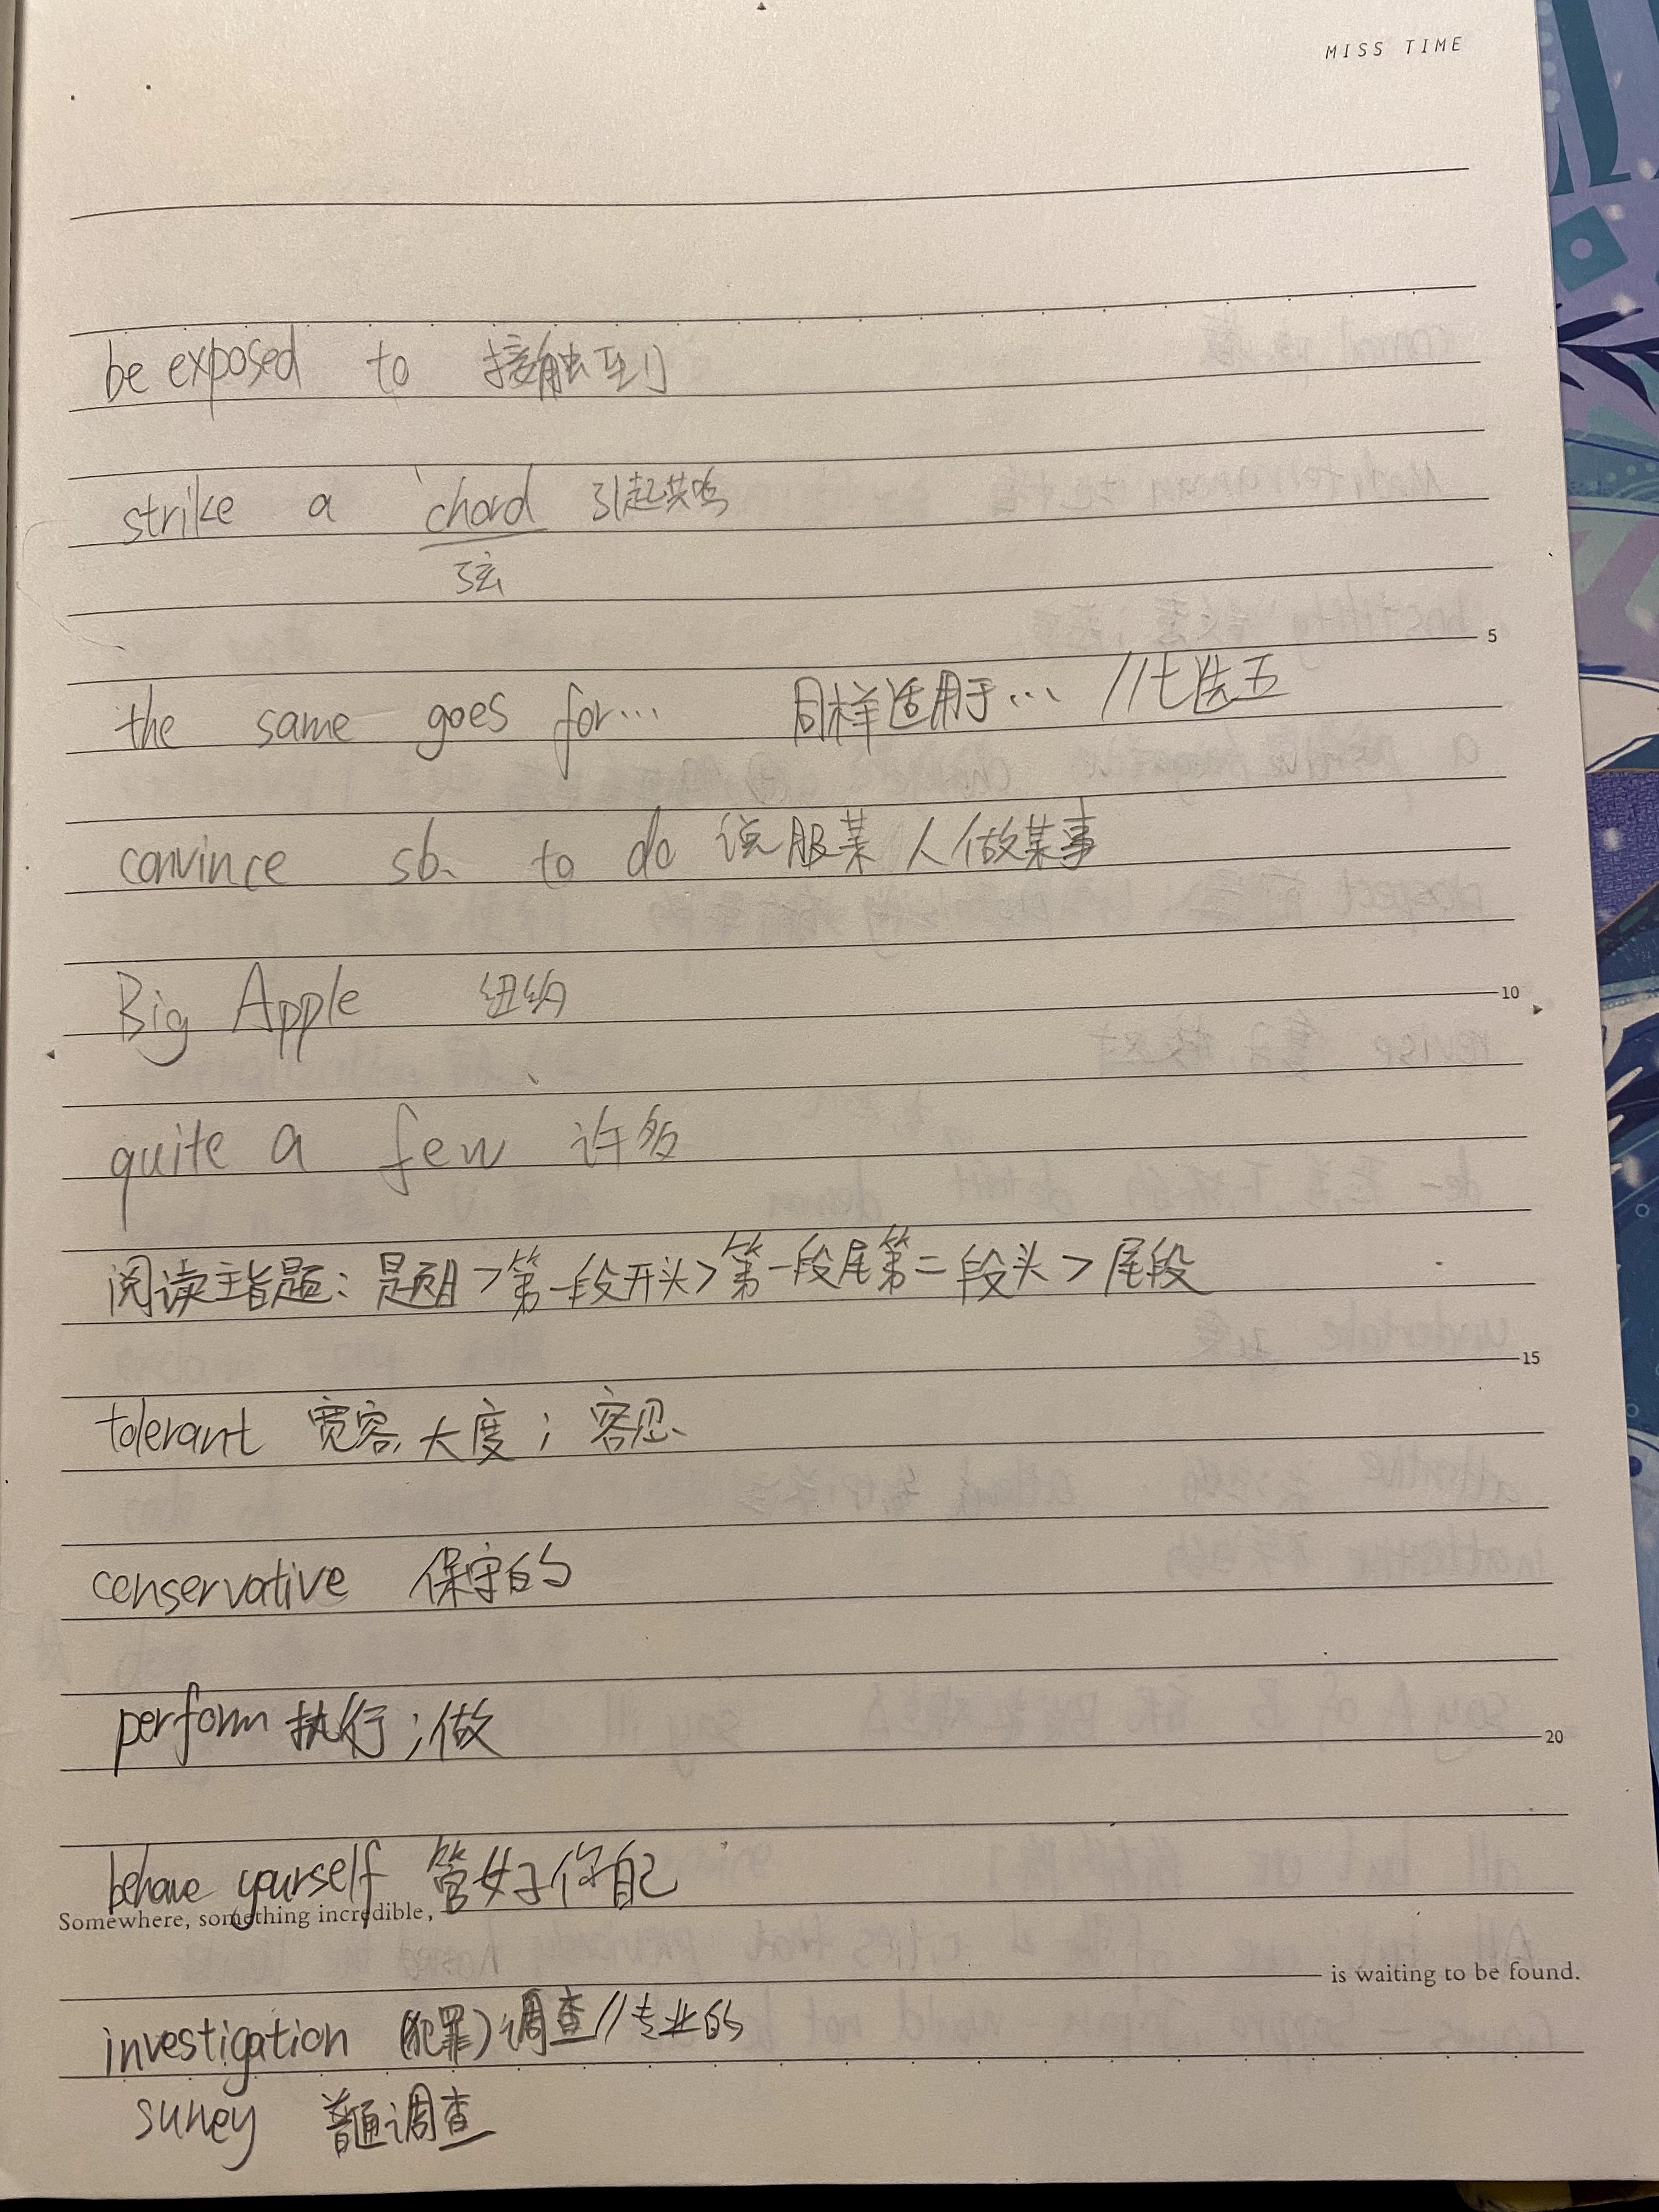 MISS TIME
be exposed to 接触到
strike a chord 引起共鸣
弦
the same goes for... 同样适用于... //
5
convince sb. to do 说服某人做某事
Big Apple 纽约
10
quite a few 许多
阅读主旨题: 是否 > 第一段开头 > 第一段尾第二段头 > 尾段
tolerant 宽容,大度; 容忍
15
conservative 保守的
perform 执行; 做
20
behave yourself 管好你自己
Somewhere, something incredible,
is waiting to be found.
investigation 犯罪)调查//
survey 普通调查